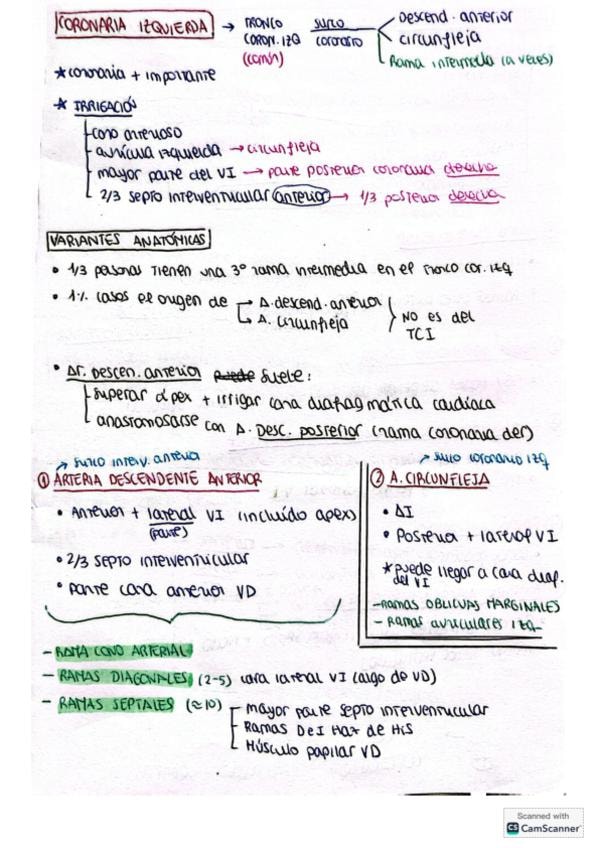 CORONARIA IZQUIERDA → TRONCO CORON. IZQ (común) surco coronario
Descend. anterior
circunfleja
Rama intermedia (a veces)
* coronaria + importante
* IRRIGACIÓN
cono arterioso
aurícula izquierda → circunfleja
mayor parte del VI → parte posterior coronaria derecha
2/3 septo interventricular anterior → 1/3 posterior derecha
VARIANTES ANATÓMICAS
• 1/3 personas tienen una 3º rama intermedia en el tronco cor. izq
• 1% casos el origen de → A. descend. anterior
↳ A. circunfleja
NO es del TCI
• Ar. Descen. anterior puede suele:
superar ápex + irrigar cara diafragmática cardíaca
anastomosarse con A. Desc. posterior (rama coronaria der)
→ surco interv. anterior
① ARTERIA DESCENDENTE ANTERIOR
• Anterior + lateral VI (incluído apex)
(parte)
• 2/3 septo interventricular
• parte cara anterior VD
→ surco coronario izq
② A. CIRCUNFLEJA
• AI
• Posterior + lateral VI
* puede llegar a cara diap. del VI
- RAMAS OBLICUAS MARGINALES
- Ramas auriculares izq
- RAMA CONO ARTERIAL
- RAMAS DIAGONALES (2-5) cara lateral VI (algo de VD)
- RAMAS SEPTALES (≈10)
mayor parte septo interventricular
Ramas DeI Haz de His
Músculo papilar VD
Scanned with
CS CamScanner